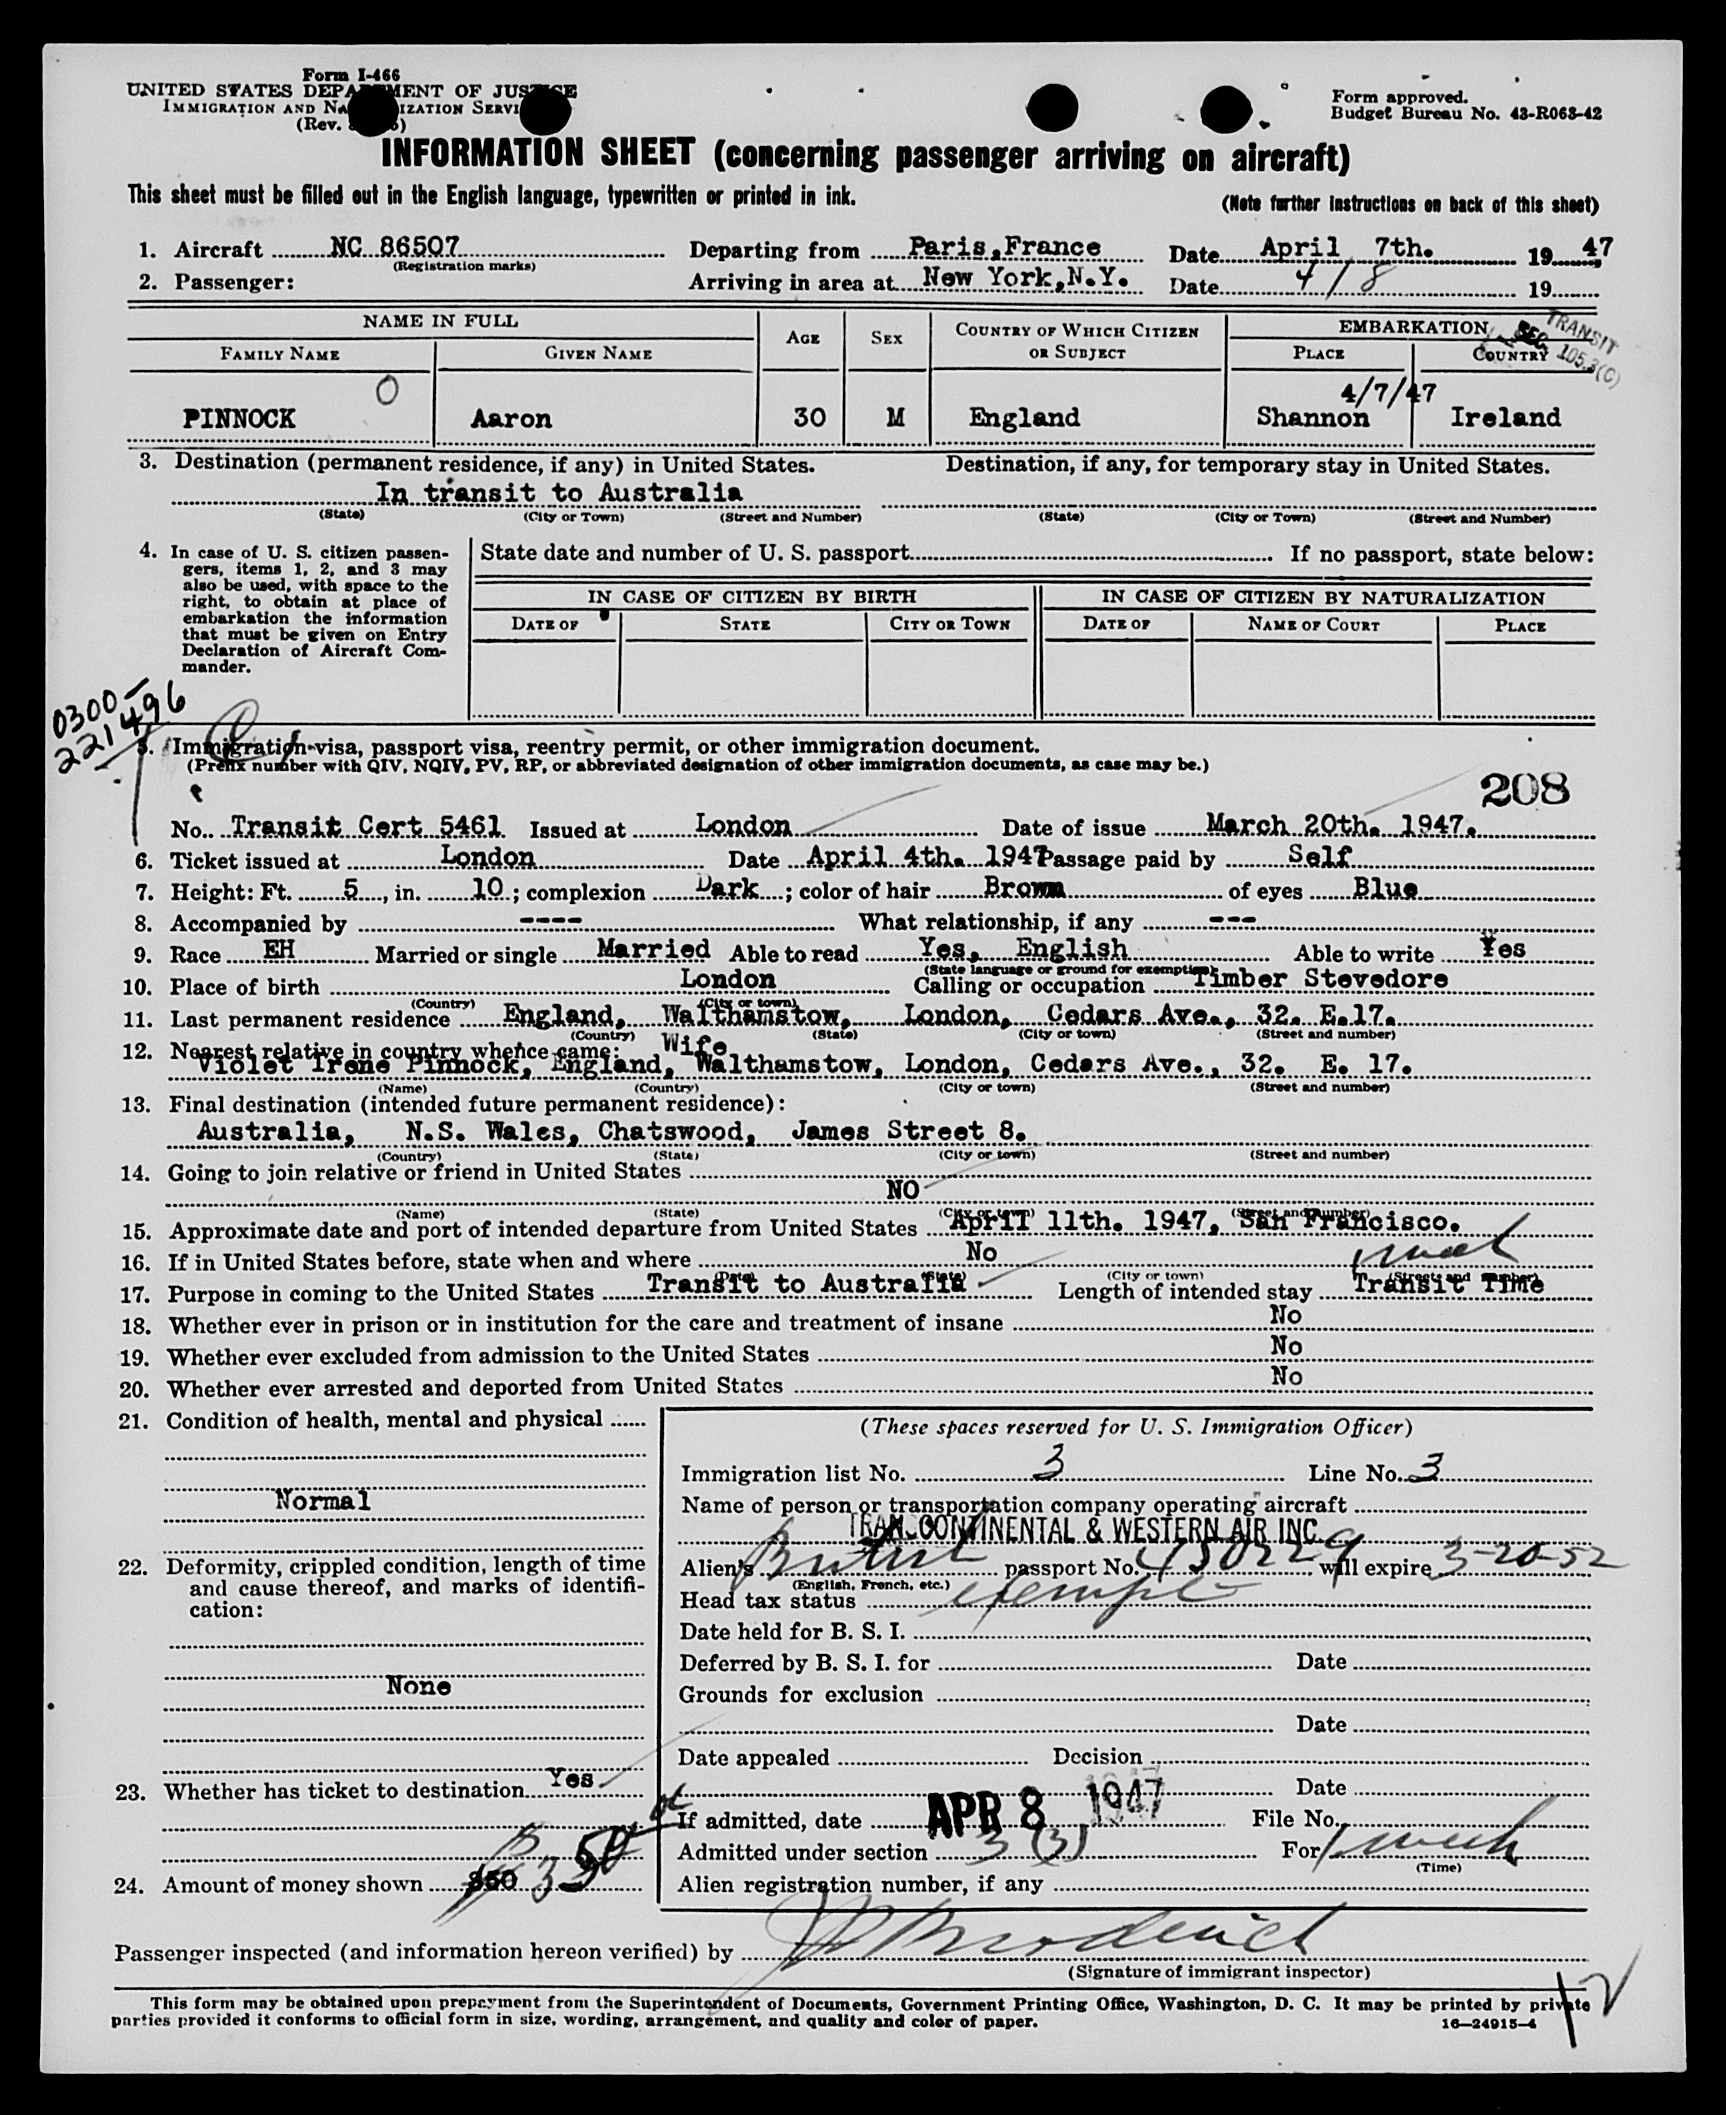 Form I-466
UNITED STATES DEPARTMENT OF JUSTICE
IMMIGRATION AND NATURALIZATION SERVICE
(Rev.
Form approved.
Budget Bureau No. 43-R063-42
INFORMATION SHEET (concerning passenger arriving on aircraft)
This sheet must be filled out in the English language, typewritten or printed in ink.
(Note further instructions on back of this sheet)
1. Aircraft NC 86507 Departing from Paris,France Date April 7th. 1947
(Registration marks)
2. Passenger: Arriving in area at New York,N.Y. Date 4/8 19
NAME IN FULL AGE SEX COUNTRY OF WHICH CITIZEN OR SUBJECT EMBARKATION
TRANSIT SEC. 105.3(C)
FAMILY NAME GIVEN NAME PLACE COUNTRY
0 4/7/47
PINNOCK Aaron 30 M England Shannon Ireland
3. Destination (permanent residence, if any) in United States. Destination, if any, for temporary stay in United States.
In transit to Australia
(State) (City or Town) (Street and Number) (State) (City or Town) (Street and Number)
4. In case of U. S. citizen passen-
gers, items 1, 2, and 3 may
also be used, with space to the
right, to obtain at place of
embarkation the information
that must be given on Entry
Declaration of Aircraft Com-
mander.
State date and number of U. S. passport If no passport, state below:
IN CASE OF CITIZEN BY BIRTH IN CASE OF CITIZEN BY NATURALIZATION
DATE OF STATE CITY OR TOWN DATE OF NAME OF COURT PLACE
0300-
221496
5. Immigration visa, passport visa, reentry permit, or other immigration document.
(Prefix number with QIV, NQIV, PV, RP, or abbreviated designation of other immigration documents, as case may be.)
208
No. Transit Cert 5461 Issued at London Date of issue March 20th. 1947.
6. Ticket issued at London Date April 4th. 1947 Passage paid by Self
7. Height: Ft. 5, in. 10; complexion Dark; color of hair Brown of eyes Blue
8. Accompanied by ---- What relationship, if any ---
9. Race EH Married or single Married Able to read Yes, English Able to write Yes
(State language or ground for exemption)
10. Place of birth London Calling or occupation Timber Stevedore
(Country) (City or town)
11. Last permanent residence England, Walthamstow, London, Cedars Ave., 32. E.17.
(Country) (State) (City or town) (Street and number)
12. Nearest relative in country whence came: Wife
Violet Irene Pinnock, England, Walthamstow, London, Cedars Ave., 32. E. 17.
(Name) (Country) (City or town) (Street and number)
13. Final destination (intended future permanent residence):
Australia, N.S. Wales, Chatswood, James Street 8.
(Country) (State) (City or town) (Street and number)
14. Going to join relative or friend in United States
NO
(Name) (State) (City or town) (Street and number)
15. Approximate date and port of intended departure from United States April 11th. 1947, San Francisco.
16. If in United States before, state when and where No
1 week
(Date) (State) (City or town) (Street and number)
17. Purpose in coming to the United States Transit to Australia Length of intended stay Transit Time
18. Whether ever in prison or in institution for the care and treatment of insane No
19. Whether ever excluded from admission to the United States No
20. Whether ever arrested and deported from United States No
21. Condition of health, mental and physical
Normal
22. Deformity, crippled condition, length of time
and cause thereof, and marks of identifi-
cation:
None
23. Whether has ticket to destination Yes
24. Amount of money shown 350
(These spaces reserved for U. S. Immigration Officer)
Immigration list No. 3 Line No. 3
Name of person or transportation company operating aircraft
TRANSCONTINENTAL & WESTERN AIR INC.
Alien's British passport No. 450229 will expire 3-20-52
(English, French, etc.)
Head tax status exempt
Date held for B. S. I.
Deferred by B. S. I. for Date
Grounds for exclusion
Date
Date appealed Decision
Date
If admitted, date APR 8 1947 File No.
Admitted under section 3 (3) For 1 week
(Time)
Alien registration number, if any
Passenger inspected (and information hereon verified) by
(Signature of immigrant inspector)
This form may be obtained upon prepayment from the Superintendent of Documents, Government Printing Office, Washington, D. C. It may be printed by private
parties provided it conforms to official form in size, wording, arrangement, and quality and color of paper.
16—24915-4